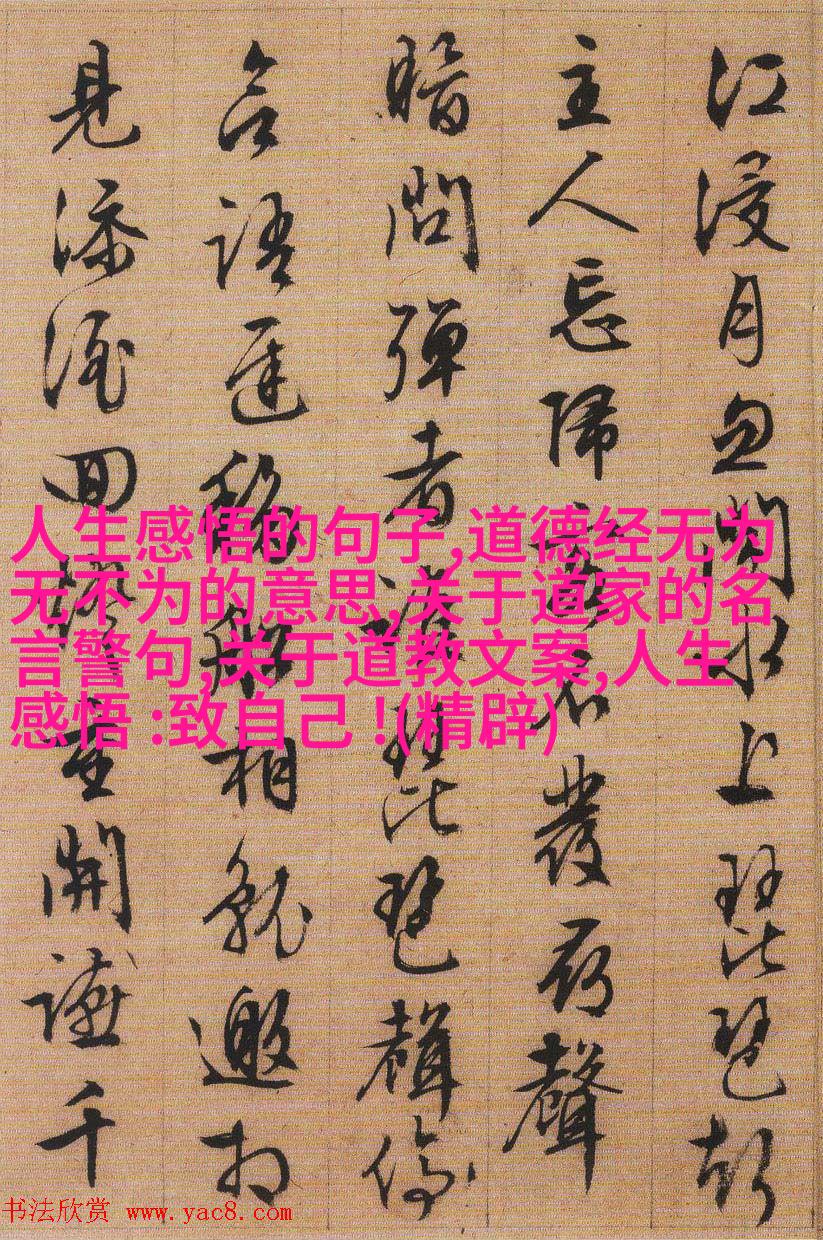 江浸月忽聞水上琵琶聲
主人忘歸客不發尋聲
暗問彈者誰琵琶聲停
欲語遲移船相就邀相
見添酒回燈重開讌千
人生感悟的句子,道德经无为
无不为的意思,关于道家的名
言警句,关于道教文案,人生
感悟 :致自己 !(精辟)
书法欣赏 www.yac8.com